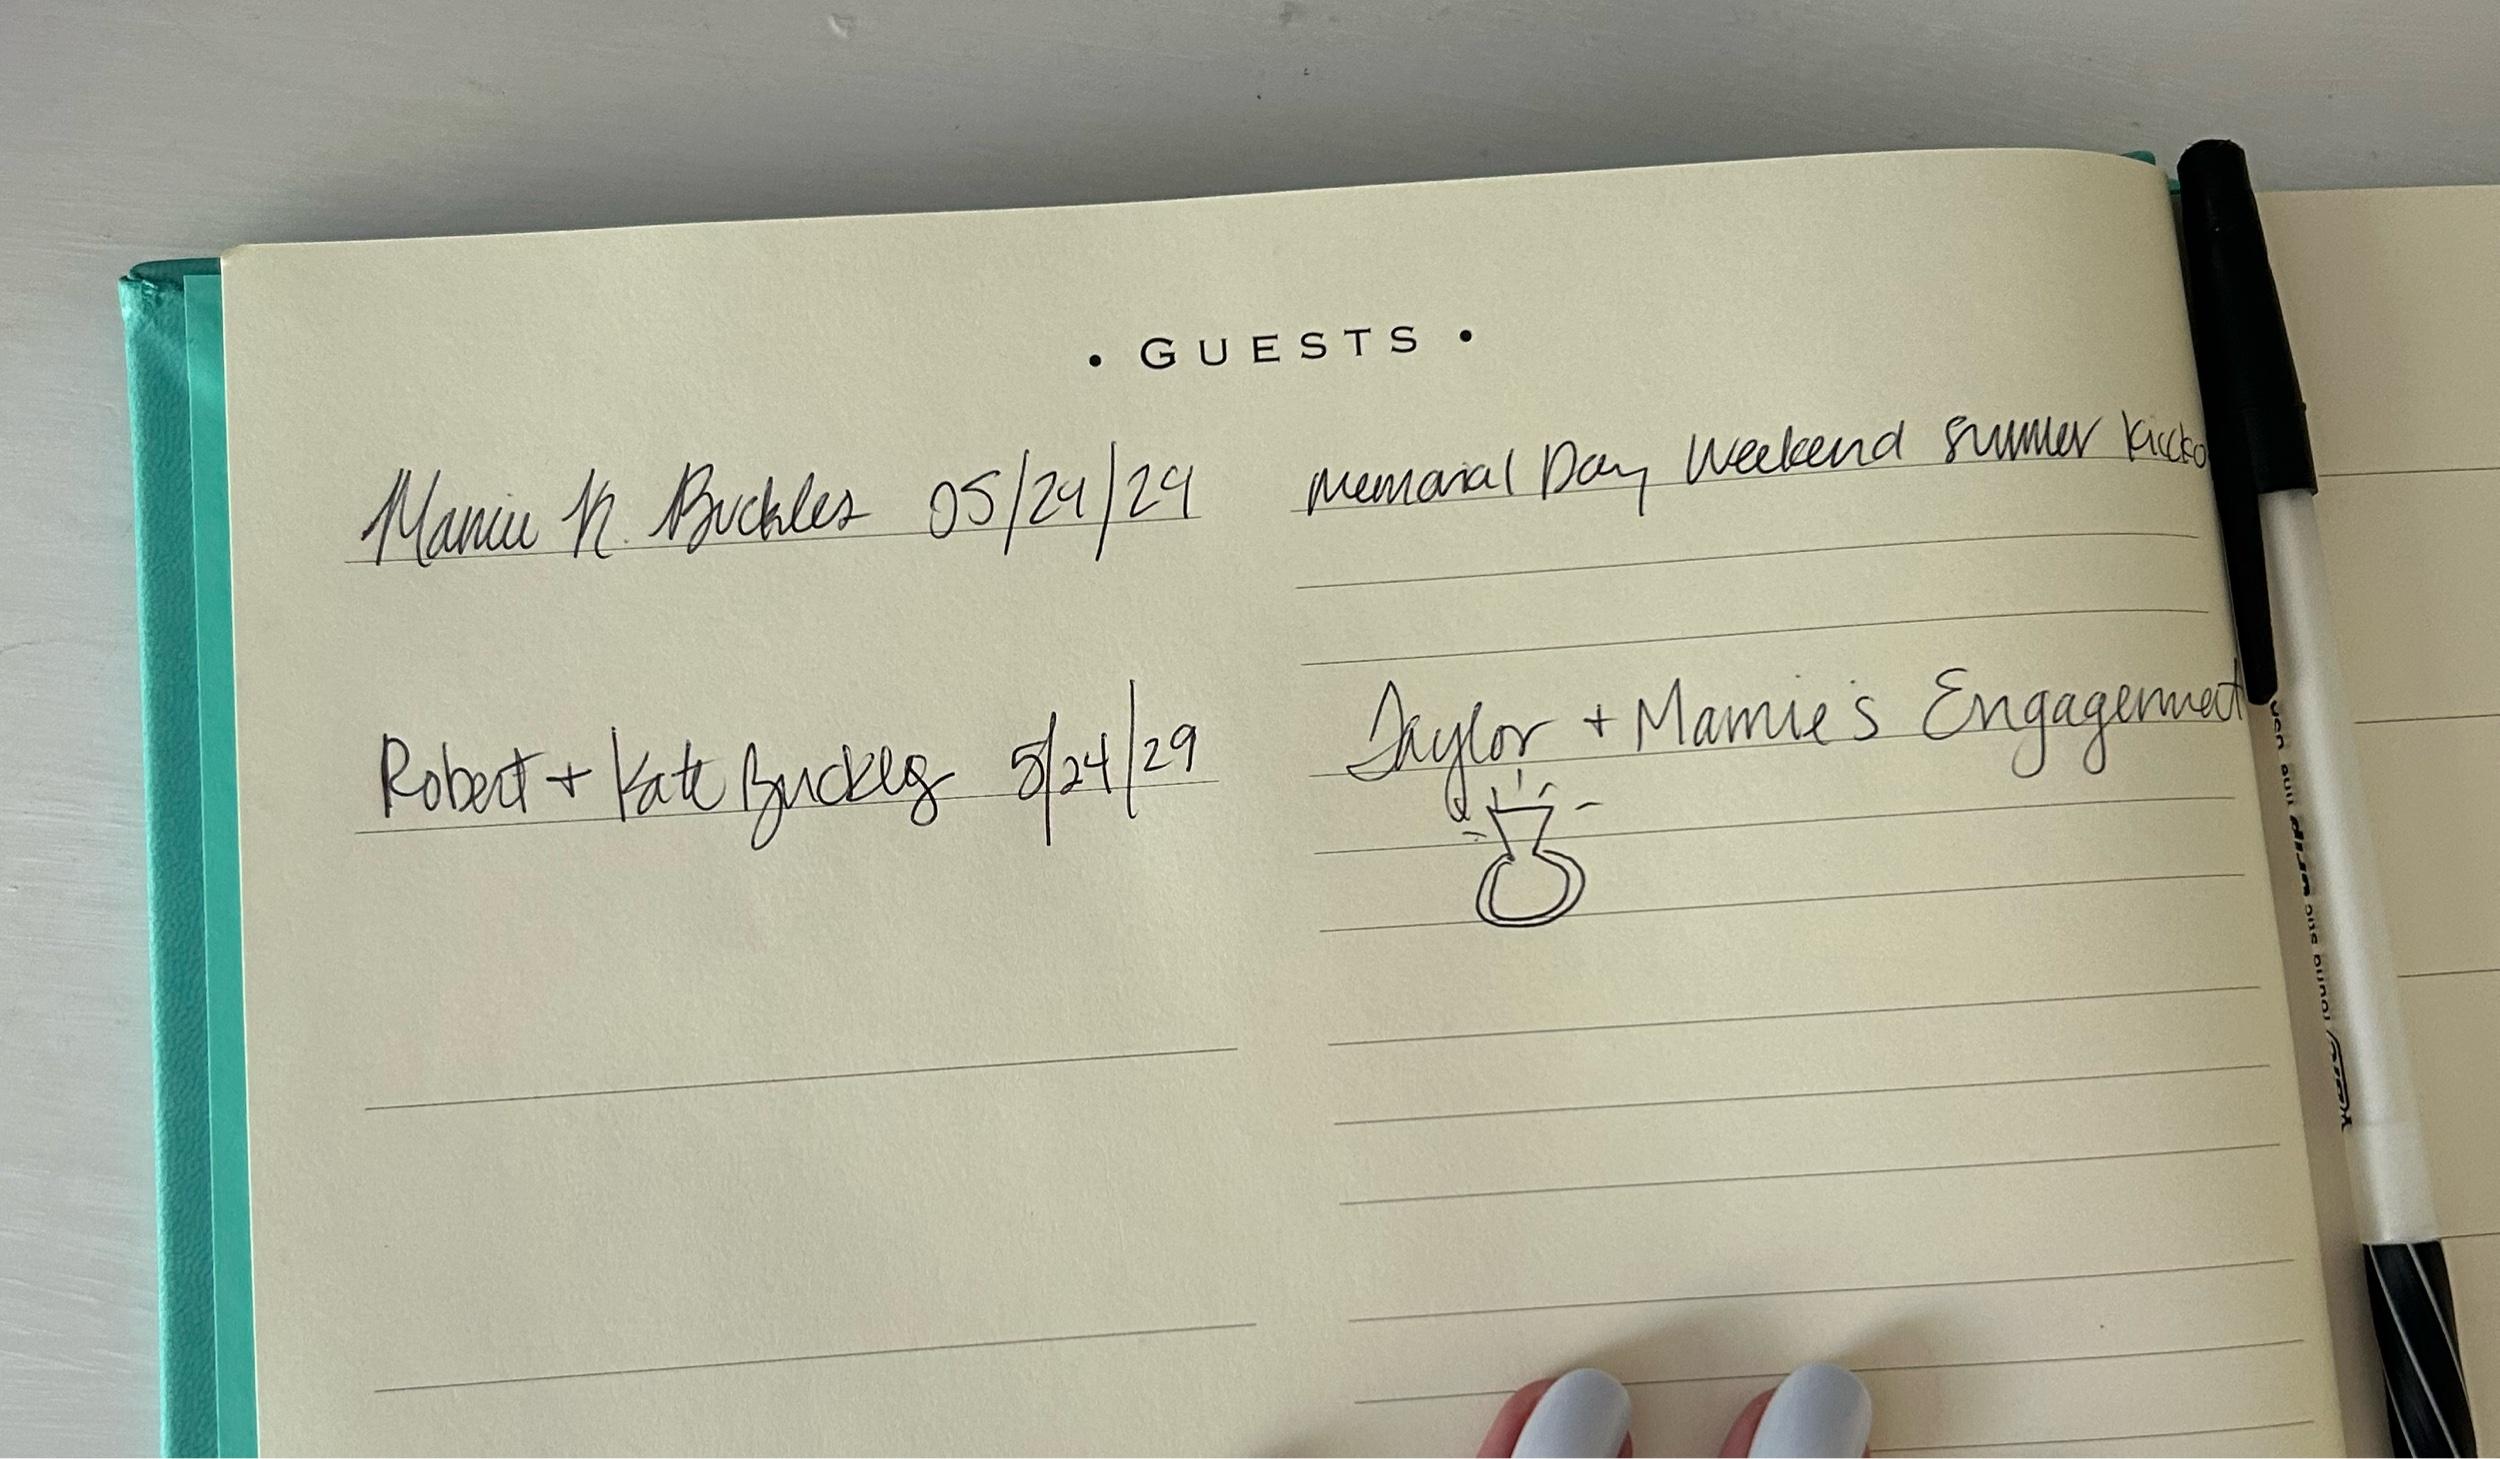 • GUESTS •
Mamie K. Buckles 05/24/24 Memorial Day Weekend summer kicko
Robert + Kate Buckles 5/24/24 Taylor + Mamie's Engagement
round stic